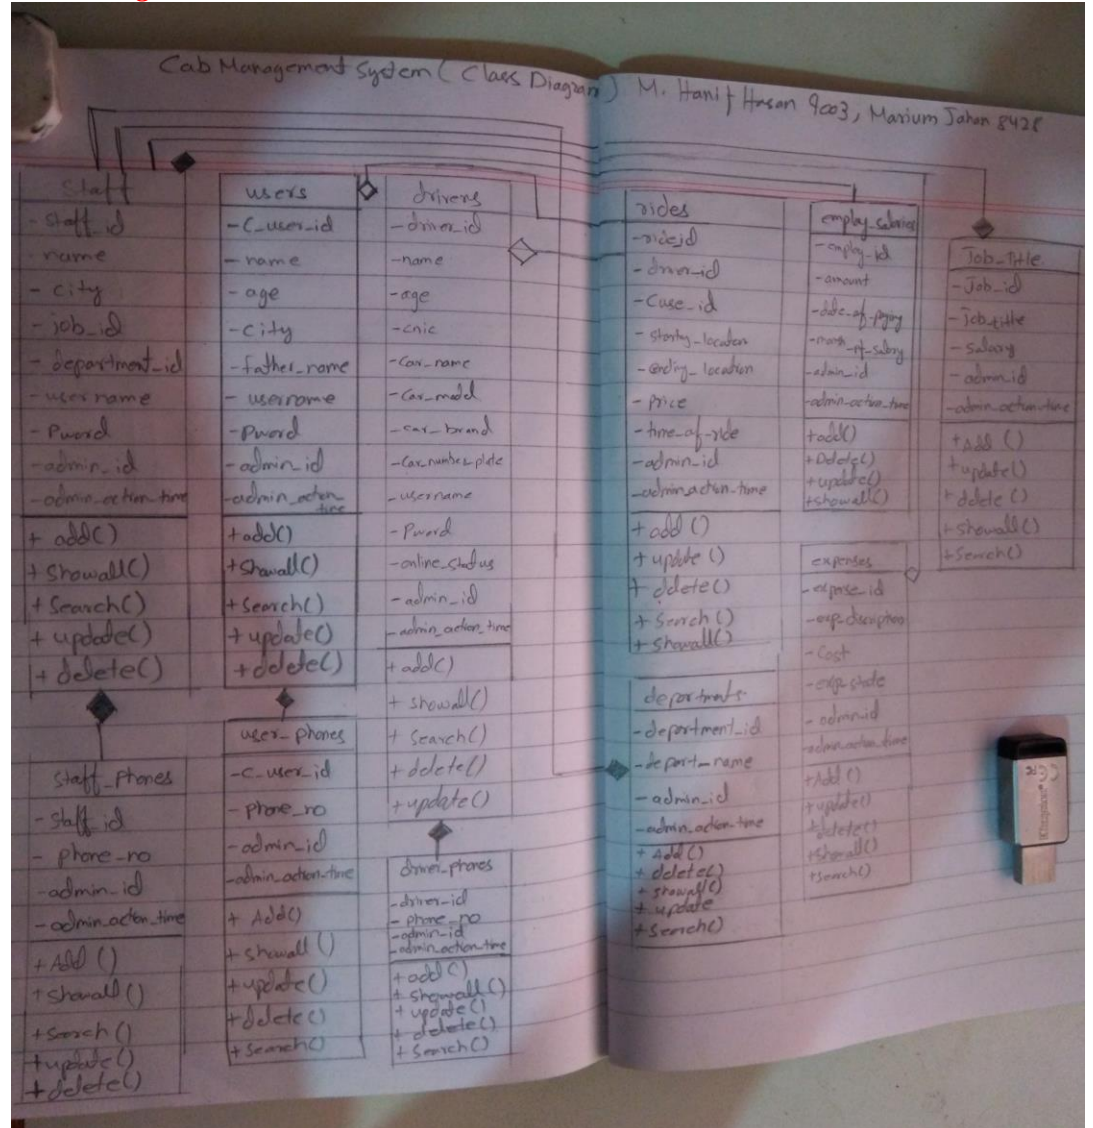 Cab Management System ( Class Diagram) M. Hanif Hasan 9003, Marium Jahan 8428
Staff
- staff_id
- name
- city
- job_id
- department_id
- username
- Pword
- admin_id
- admin_action_time
+ add()
+ Showall()
+ Search()
+ update()
+ delete()
Staff_Phones
- Staff_id
- phone_no
- admin_id
- admin_action_time
+ Add ()
+ Showall ()
+ Search ()
+ update()
+ delete()
users
- C_user_id
- name
- age
- City
- father_name
- username
- Pword
- admin_id
- admin_action_
time
+ add()
+ Showall()
+ Search()
+ update()
+ delete()
user_phones
- C_user_id
- phone_no
- admin_id
- admin_action_time
+ Add()
+ Showall ()
+ update()
+ delete()
+ Search()
drivers
- driver_id
- name
- age
- cnic
- Car_name
- Car_model
- car_brand
- Car_number_plate
- username
- Pword
- online_status
- admin_id
- admin_action_time
+ add()
+ showall()
+ Search()
+ delete()
+ update()
driver_phones
- driver_id
- phone_no
- admin_id
- admin_action_time
+ add()
+ Showall ()
+ update ()
+ delete()
+ Search()
rides
- rideid
- driver_id
- Cuse_id
- starting_location
- ending_location
- Price
- time_of_ride
- admin_id
- admin_action_time
+ add ()
+ update ()
+ delete()
+ Search()
+ Showall()
departments
- department_id
- depart_name
- admin_id
- admin_action_time
+ Add()
+ delete()
+ showall()
+ update
+ Search()
employ_salaries
- employ_id
- amount
- date_of_paying
- month_of_salary
- admin_id
- admin_action_time
+ add()
+ Delete()
+ update()
+ Showall()
expenses
- expense_id
- exp_discription
- Cost
- admin_id
- admin_action_time
+ Add ()
+ update()
+ delete()
+ Showall()
+ Search()
Job_title
- Job_id
- job_title
- Salary
- admin_id
- admin_action_time
+ Add ()
+ update()
+ delete ()
+ Showall()
+ Search()